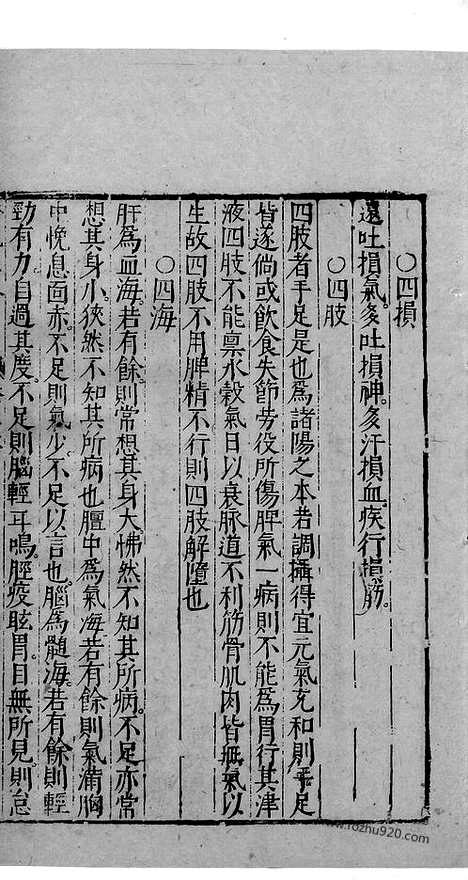 ○四損
遠吐損氣多吐損神多汗損血疾行損筋
○四肢
四肢者手足是也為諸陽之本若調攝得宜元氣充和則手足
皆遂倘或飲食失節勞役所傷脾氣一病則不能為胃行其津
液四肢不能禀水穀氣日以衰脉道不利筋骨肌肉皆無氣以
生故四肢不用脾精不行則四肢解墮也
○四海
肝為血海若有餘則常想其身大怫然不知其所病不足亦常
想其身小狹然不知其所病也膻中為氣海若有餘則氣滿胸
中悗息面赤不足則氣少不足以言也腦為髓海若有餘則輕
勁有力自過其度不足則腦輕耳鳴脛疫眩冒目無所見則怠
www.fozhu920.com